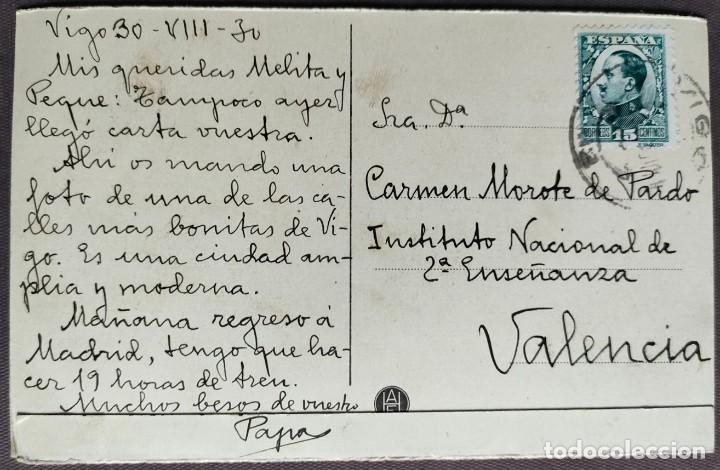 Vigo 30-VIII-30
Mis queridas Melita y
Peque: Tampoco ayer
llegó carta vuestra.
Ahi os mando una
foto de una de las ca-
lles más bonitas de Vi-
go. Es una ciudad am-
plia y moderna.
Mañana regreso á
Madrid, tengo que ha-
cer 19 horas de tren.
Muchos besos de vuestro
Papa
ESPAÑA
CORREOS 15 CENTIMOS
VIGO
Sra. Dª
Carmen Morote de Pardo
Instituto Nacional de
2ª Enseñanza
Valencia
todocoleccion
todocoleccion.net